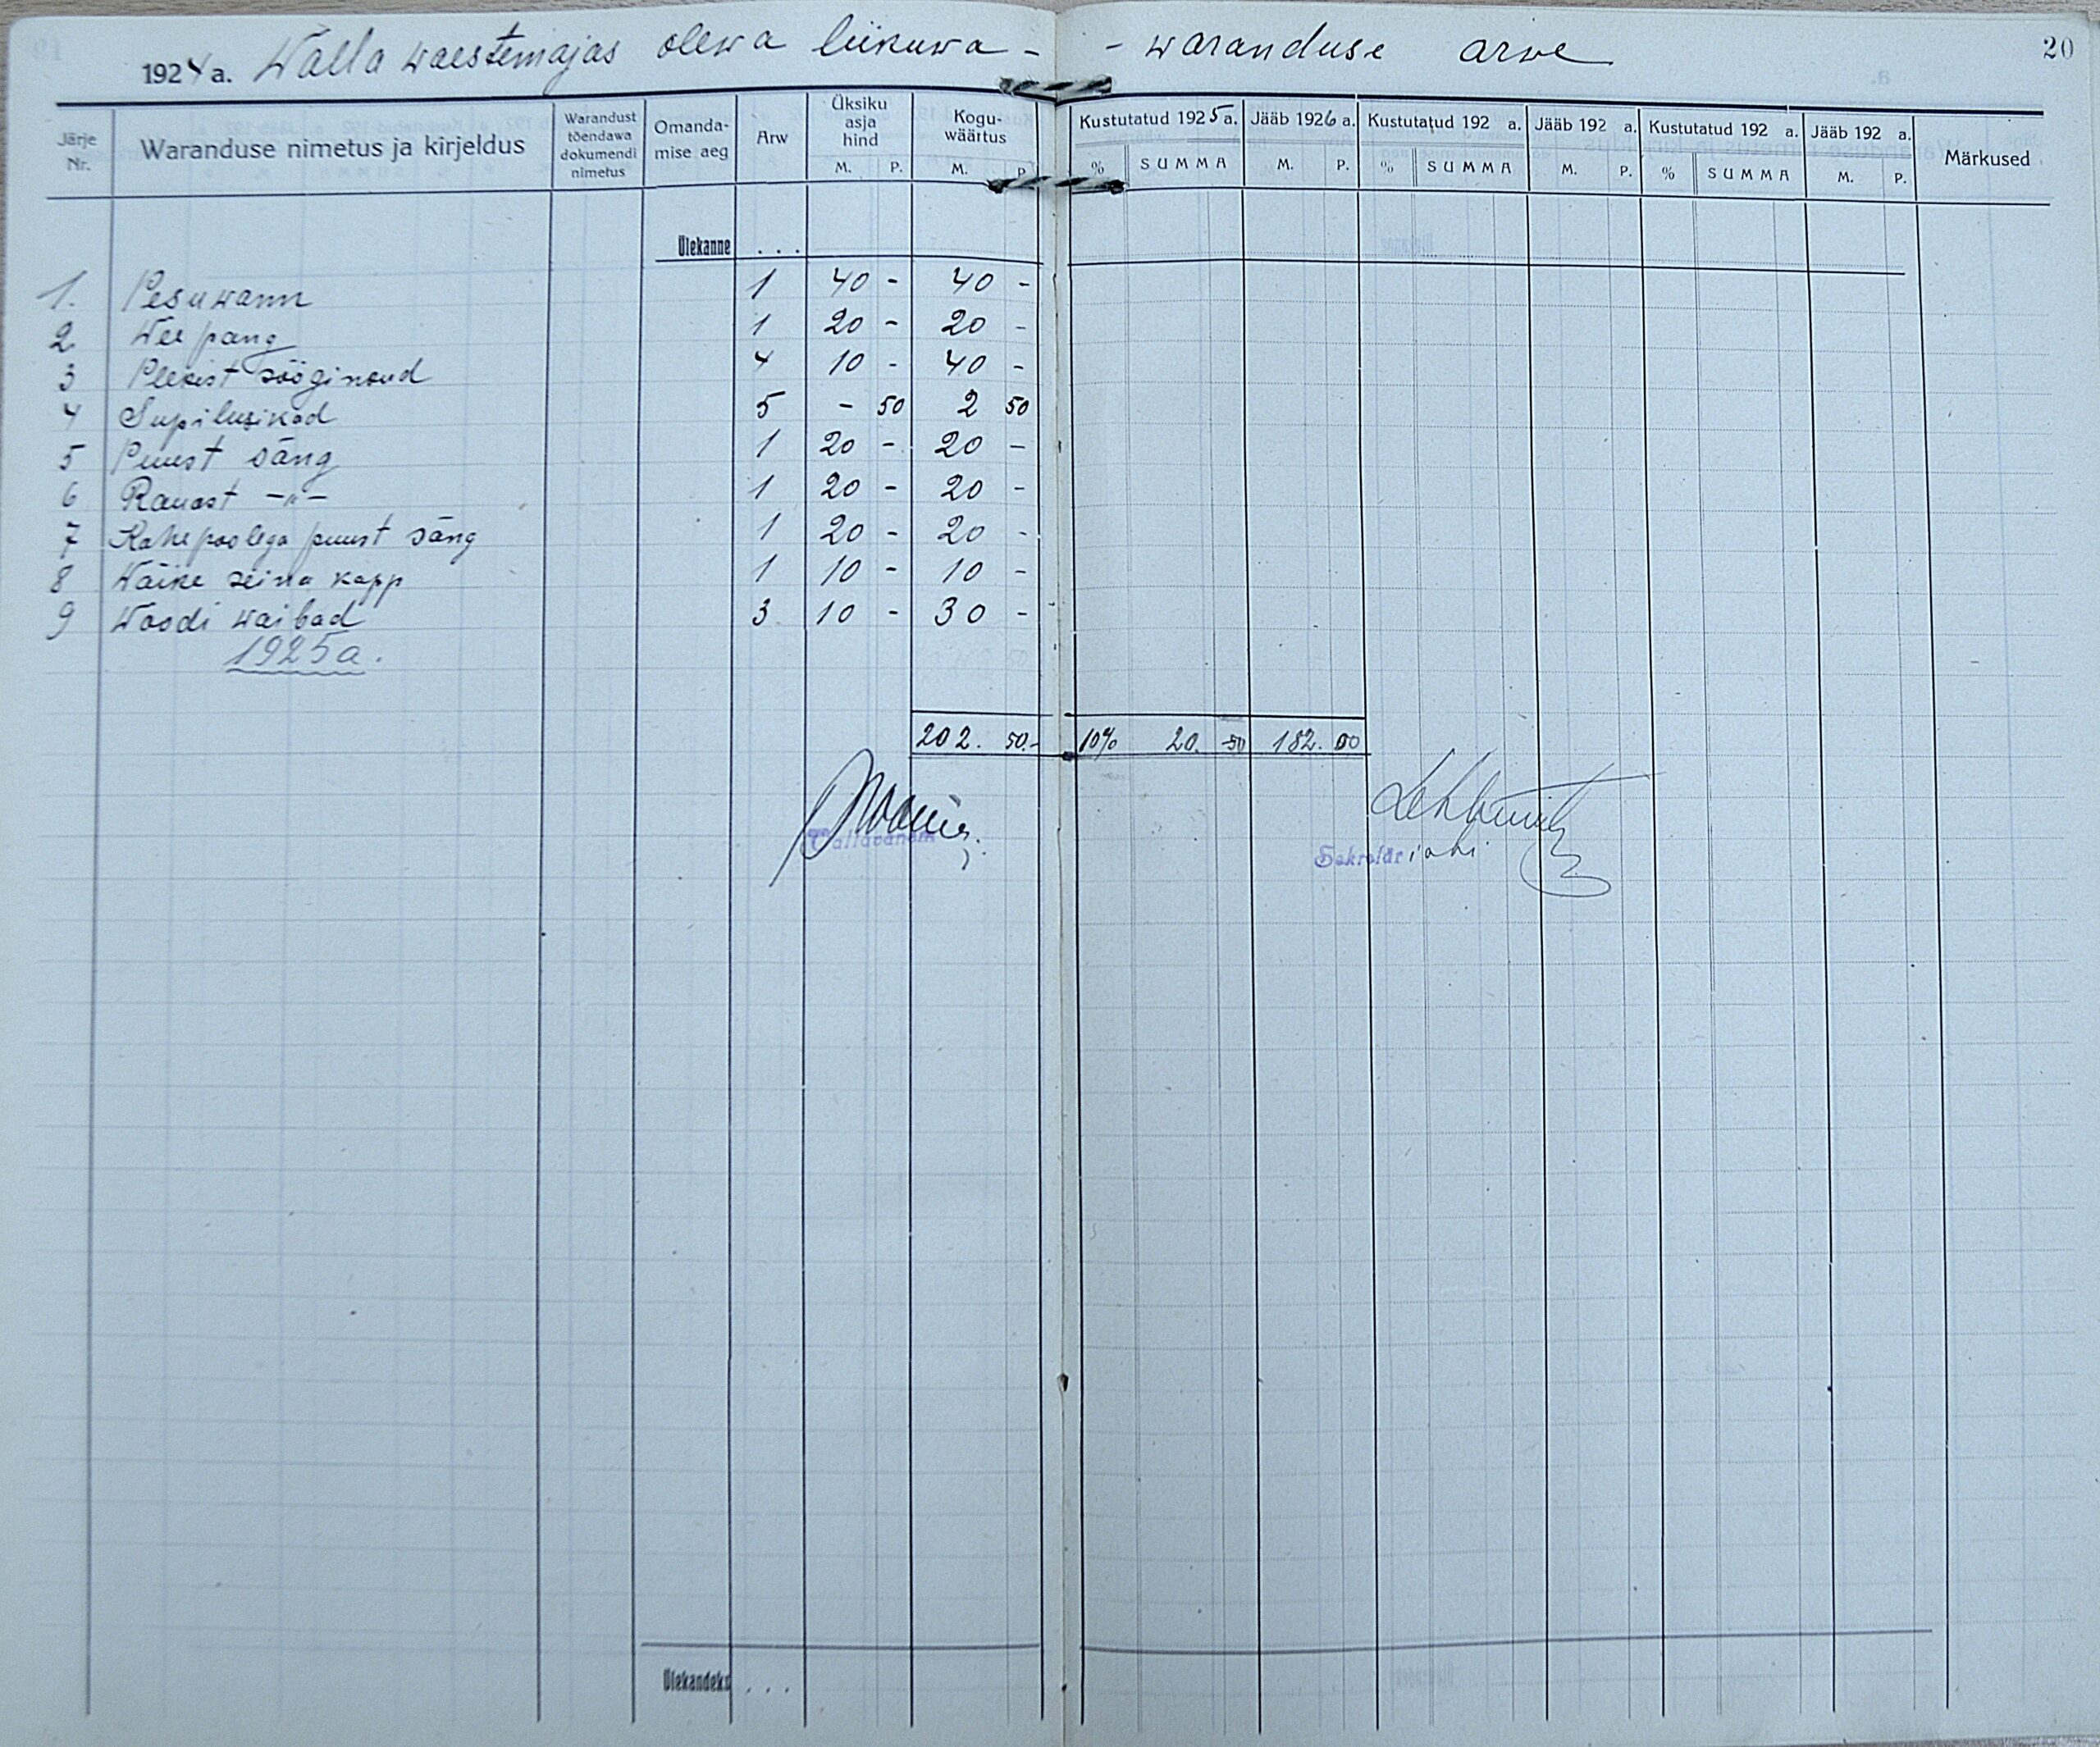 1924 a. Walla waestemajas olewa liikuwa - - waranduse arwe 20
Järje Nr. Waranduse nimetus ja kirjeldus Warandust tõendawa dokumendi nimetus Omandamise aeg Arw Üksiku asja hind M. P. Kogu-wäärtus M. P. Kustutatud 1925 a. % SUMMA Jääb 1926 a. M. P. Kustutatud 192 a. % SUMMA Jääb 192 a. M. P. Kustutatud 192 a. % SUMMA Jääb 192 a. M. P. Märkused
Ülekanne . . .
1. Pesuwann 1 40 - 40 -
2 Wee pang 1 20 - 20 -
3 Plekist sööginoud 4 10 - 40 -
4 Supilusikad 5 - 50 2 50
5 Puust säng 1 20 - 20 -
6 Rauast -"- 1 20 - 20 -
7 Kahe poolega puust säng 1 20 - 20 -
8 Wäike seina kapp 1 10 - 10 -
9 Woodi waibad 3 10 - 30 -
1925 a.
202. 50.- 10% 20. 50 182. 00
Vallavanem
Sekretär
Ülekandeks . . .